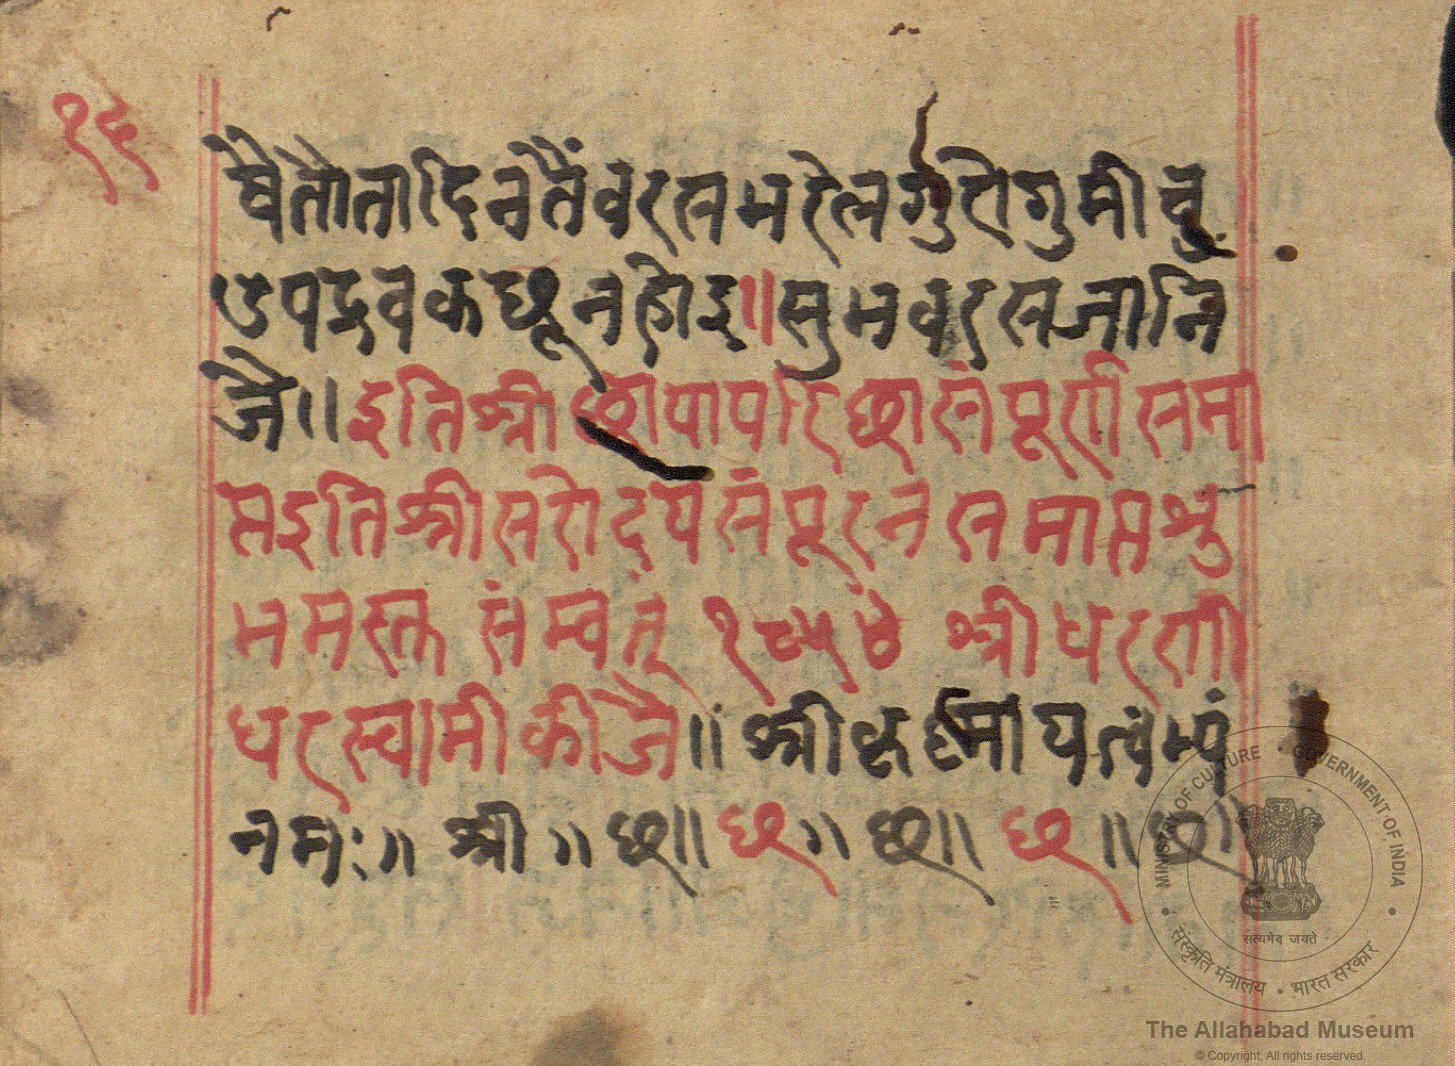 १६
षैतौतादिनतैंवरसभरेलगुरोगुमीचु
उपद्रवकछूनहोइ॥सुभवरसजानि
जै॥इतिश्रीछायापरिछासंपूर्णसमा
प्तइतिश्रीसरोदयसंपूरनसमाप्तश्रु
भमस्त संम्वत् १८५४ श्रीधरणी
धरस्वामीकीजै॥श्री
नमः॥ श्री ॥ छ॥ छ॥ छ॥ छ ॥छ॥
MINISTRY OF CULTURE GOVERNMENT OF INDIA
सत्यमेव जयते
संस्कृति मंत्रालय • भारत सरकार
The Allahabad Museum
© Copyright, All rights reserved